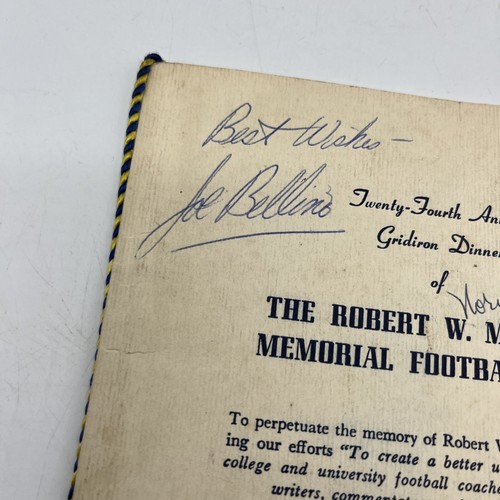 Best Wishes –
Joe Bellino
Twenty-Fourth An
Gridiron Dinne
of
Nor
THE ROBERT W. M
MEMORIAL FOOTBA
To perpetuate the memory of Robert W
ing our efforts "To create a better u
college and university football coach
writers, commentat